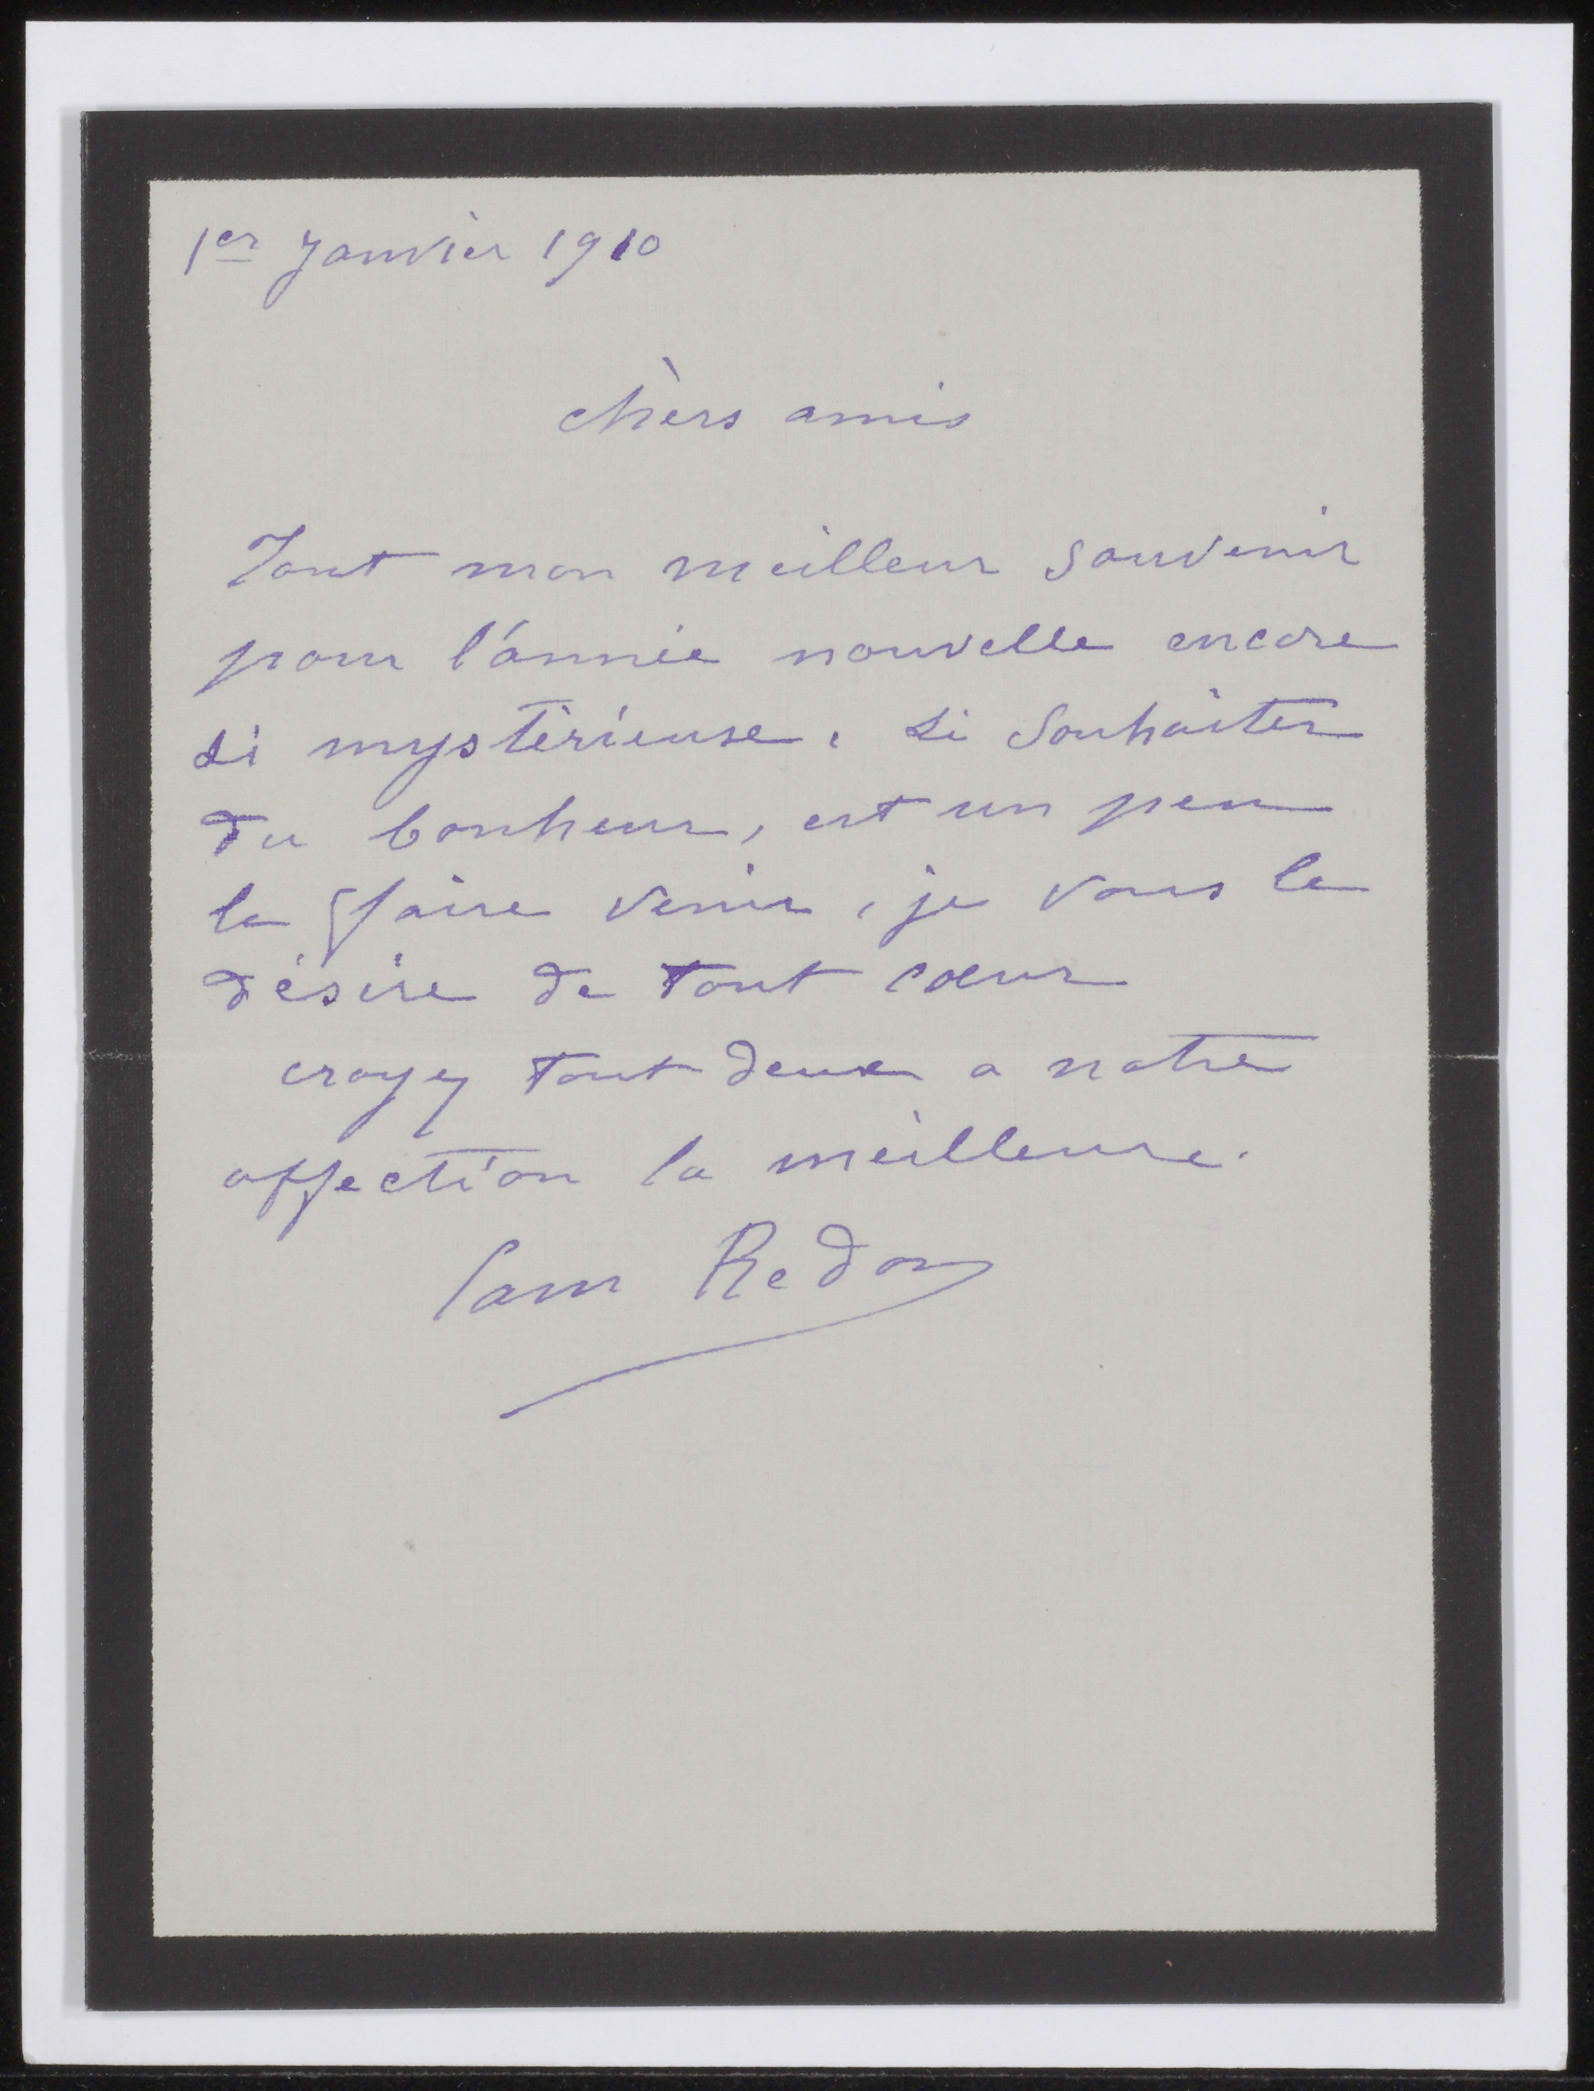 1er Janvier 1910
chers amis
Tout mon meilleur souvenir
pour l'année nouvelle encore
si mystérieuse, si souhaiter
du bonheur, est un peu
le faire venir, je vous le
désire de tout cœur
croyez tout deux a notre
affection la meilleure.
Cam Redon